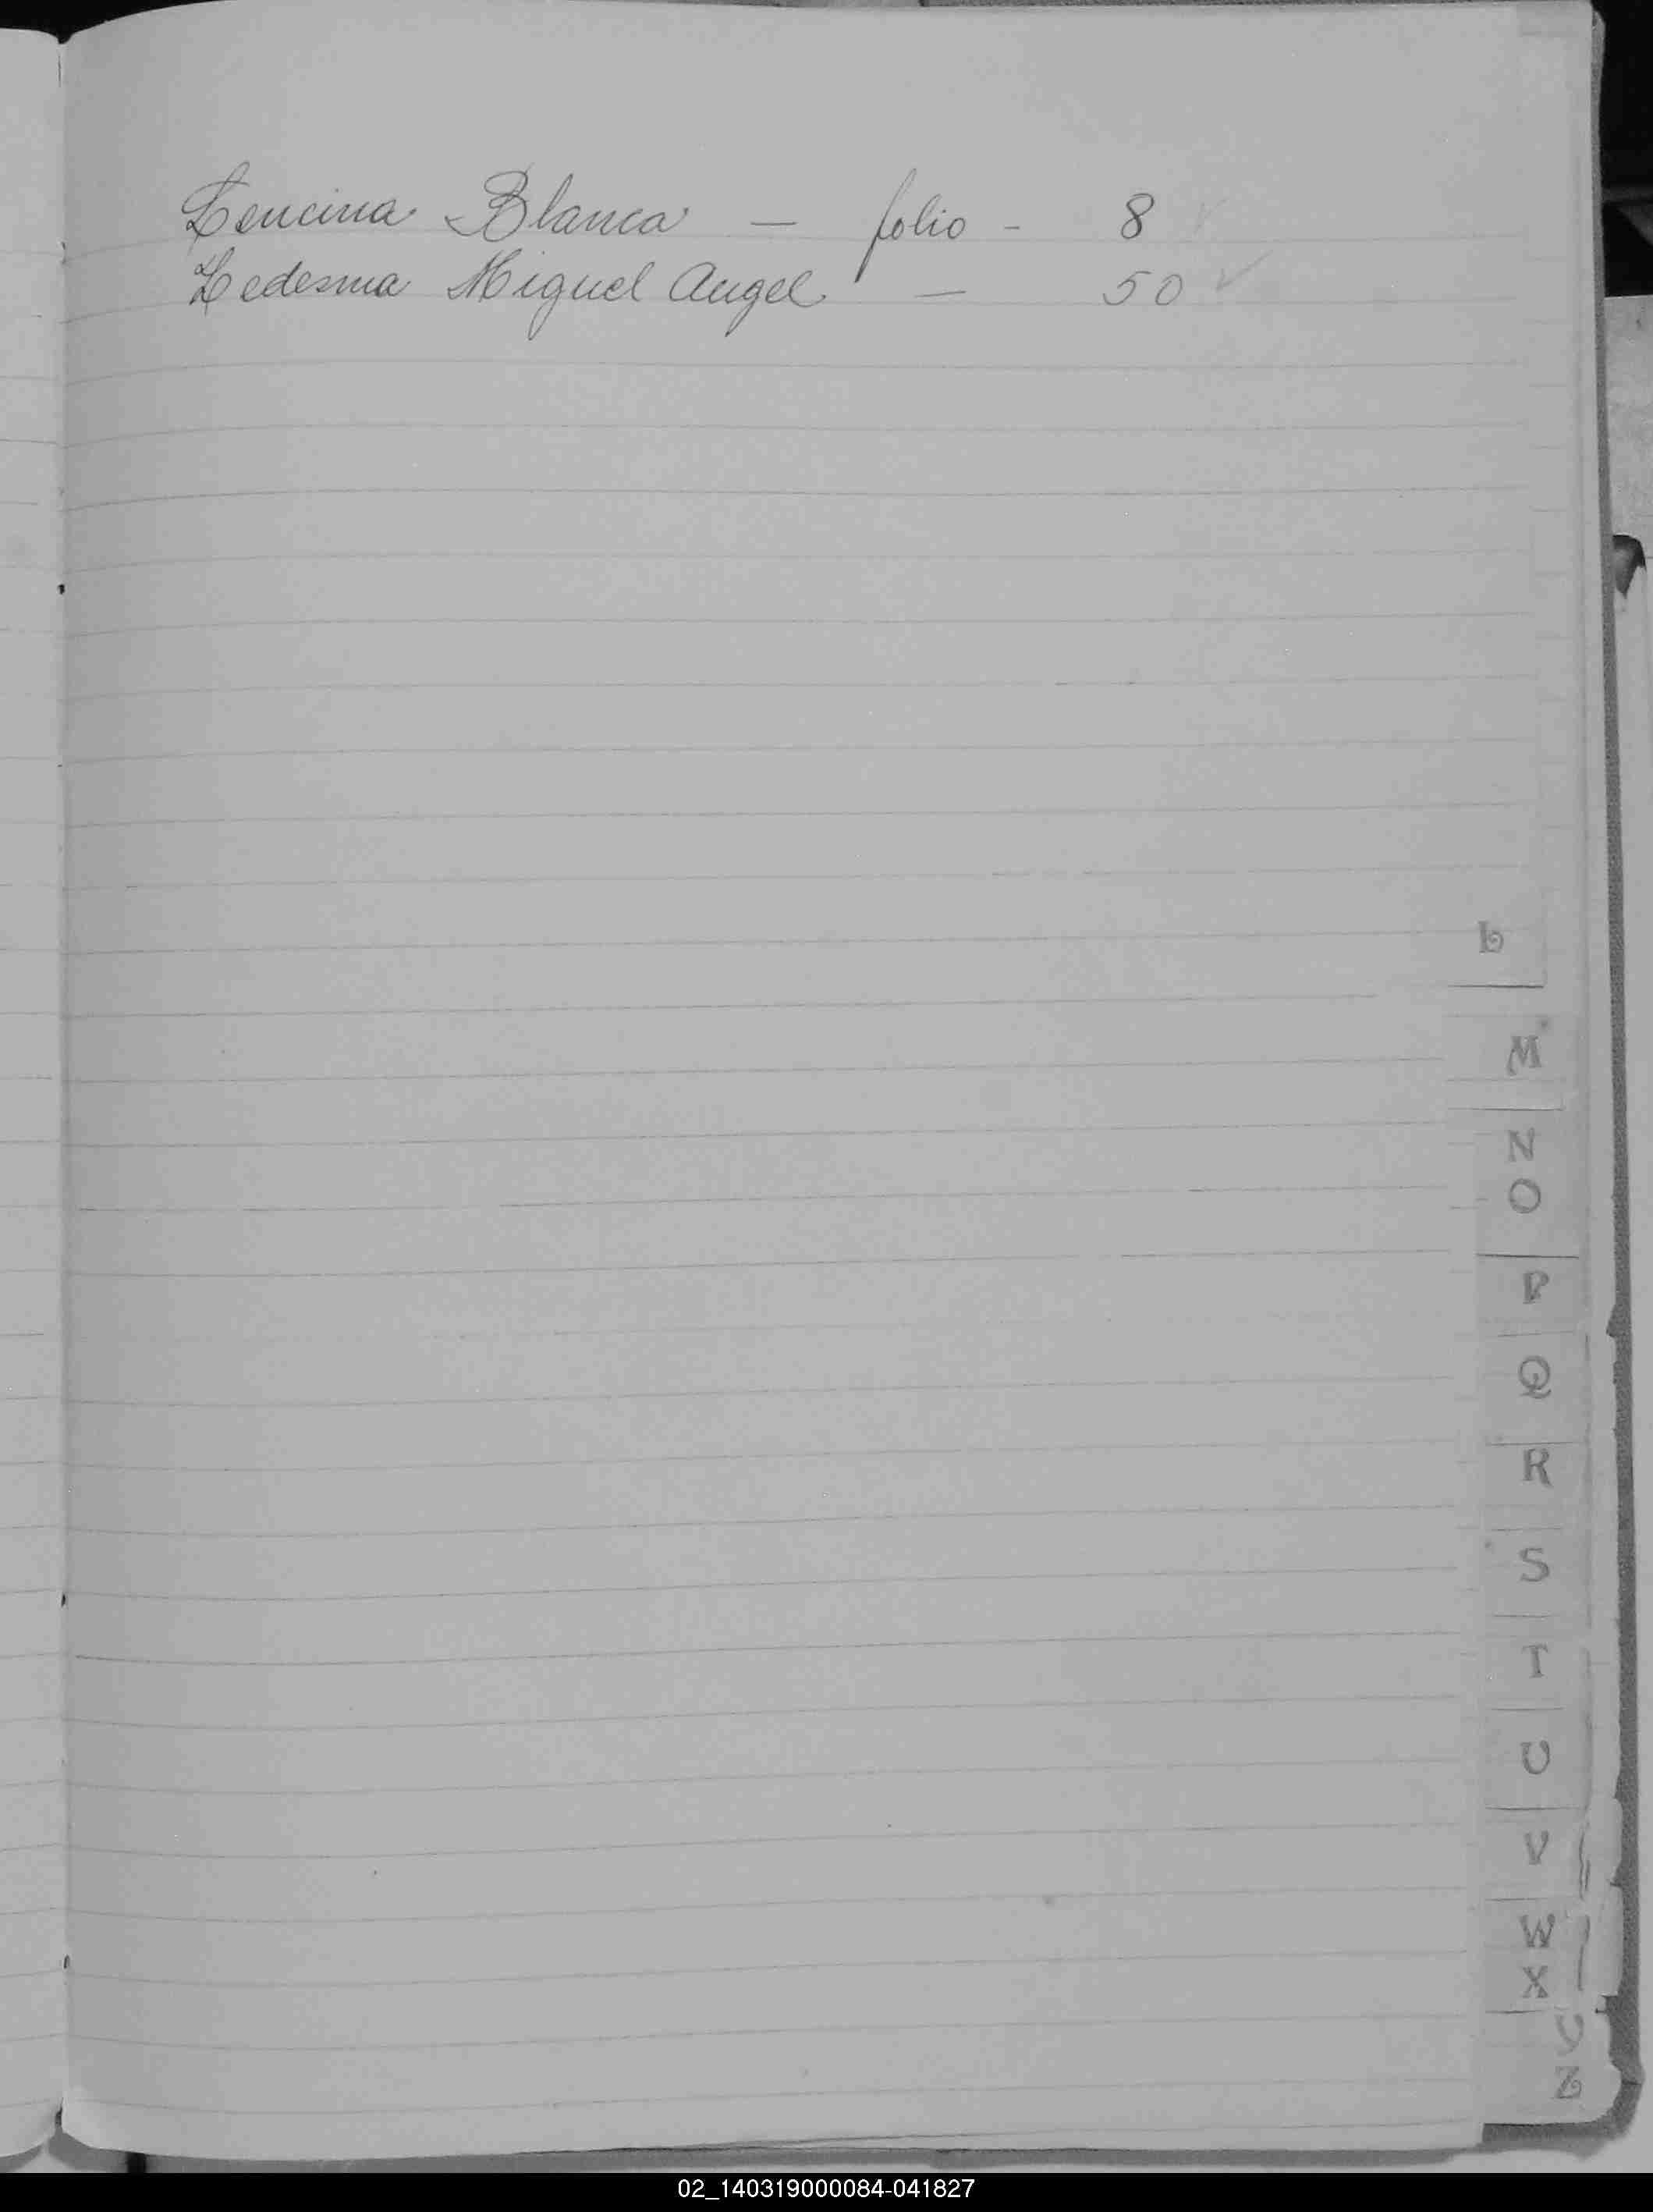 Lencina Blanca — folio - 8 ✓
Ledesma Miguel Angel — 50 ✓
L
M
N
O
P
Q
R
S
T
U
V
W
X
Y
Z
02_140319000084-041827